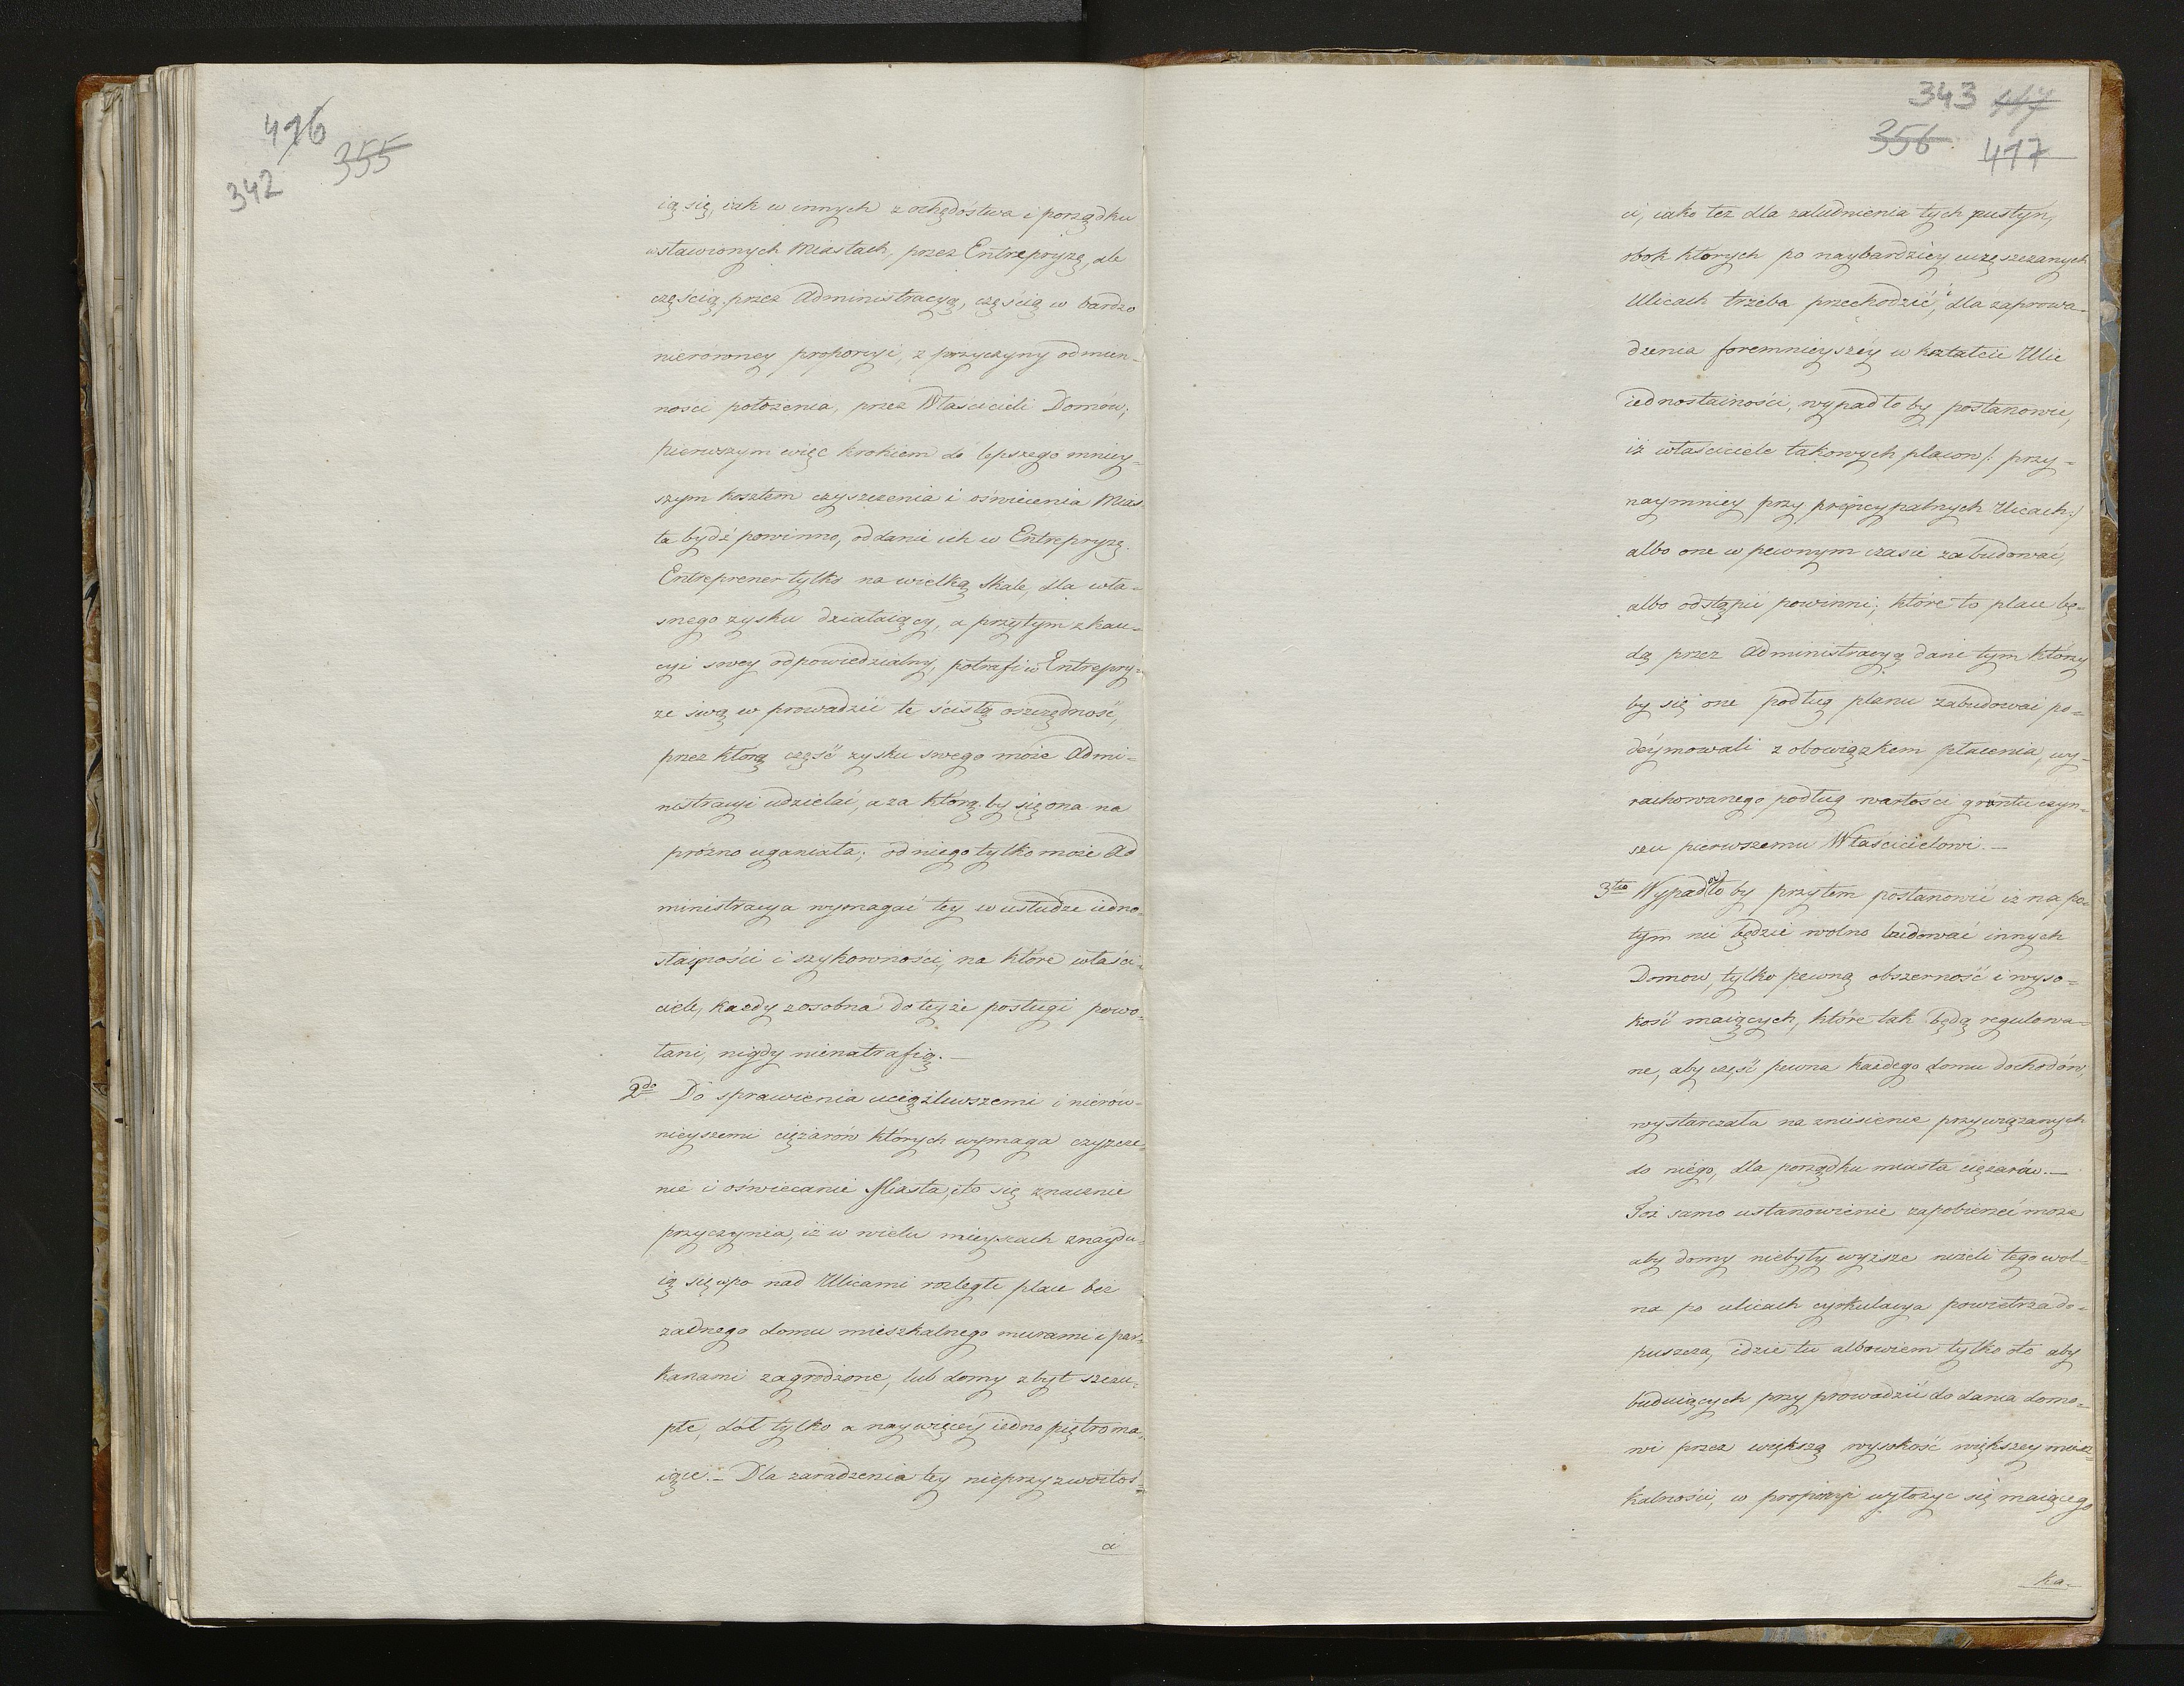 416
355
342
ią się, iak w innych z ochędóstwa i porządku
wsławionych Miastach, przez Entrepryzę, ale
częścią przez Administracyą, częścią w bardzo
nierówney proporcyi, z przyczyny odmien-
nosci położenia, przez Właścicieli Domów;
pierwszym więc krokiem do lepszego mniey-
szym kosztem czyszczenia i oświecenia Mias
ta bydź powinno, oddanie ich w Entrepryzę.
Entreprener tylko na wielką skalę, dla wła-
snego zysku działaiący, a przytym z kau-
cyi swey odpowiedzialny, potrafi w Entrepry-
ze swą wprowadzić te ścisłą oszczędność,
przez którą część zysku swego może Admi-
nistracyi udzielać, a za którą by się ona na
próżno uganiała; od niego tylko może Ad
ministracya wymagać tey w usłudze iedno-
stayności i szykowności, na które właści-
ciele, każdy zosobna do teyże posługi powo-
łani, nigdy nienatrafią.—
2do Do sprawienia uciążliwszemi i nierów-
nieyszemi ciężarów których wymaga czyszcze-
nie i oświecanie Miasta, i to się znacznie
przyczynia, iż w wielu mieyscach znaydu-
ią się wpo nad Ulicami rozległe place bez
żadnego domu mieszkalnego murami i par-
kanami zagrodzone, lub domy zbyt szczu-
płe, dół tylko a naywięcéy iedno piętro ma-
iące.— Dla zaradzenia tey nieprzyzwoitoś-
ci
343 417
356 417
ci, iako też dla zaludnienia tych pustyn,
obok których po naybardziéy uczęszczanych
Ulicach trzeba przechodzić, dla zaprowa-
dzenia foremnieyszéy w kształcie Ulic
iednostainości, wypadło by postanowić,
iż właściciele takowych placow /: przy-
naymniey przy pryncypalnych Ulicach:/
albo one w pewnym czasie zabudować,
albo odstąpić powinni; które to place bę-
dą przez Administracyą dane tym którzy
by się one podług planu zabudować po-
déymowali z obowiązkiem płacenia, wy-
rachowanego podług wartości gruntu czyn-
szu pierwszemu Właścicielowi.—
3tio Wypadło by przytem postanowić iż na po-
tym nie będzie wolno budować innych
Domow, tylko pewną obszerność i wyso-
kość maiących, które tak będą regulowa-
ne, aby część pewna każdego domu dochodów,
wystarczała na zniesienie przywiązanych
do niego, dla porządku miasta ciężarów.—
Toż samo ustanowienie zapobierzeć może
aby domy niebyły wyższe niżeli tego wol-
na po ulicach cyrkulacya powietrza do-
puszcza, idzie tu albowiem tylko oto aby
buduiących przyprowadzić do dania domo-
wi przez większą wysokość większey miesz-
kalności, w proporcyi wyłożyć się maiącego
ka-